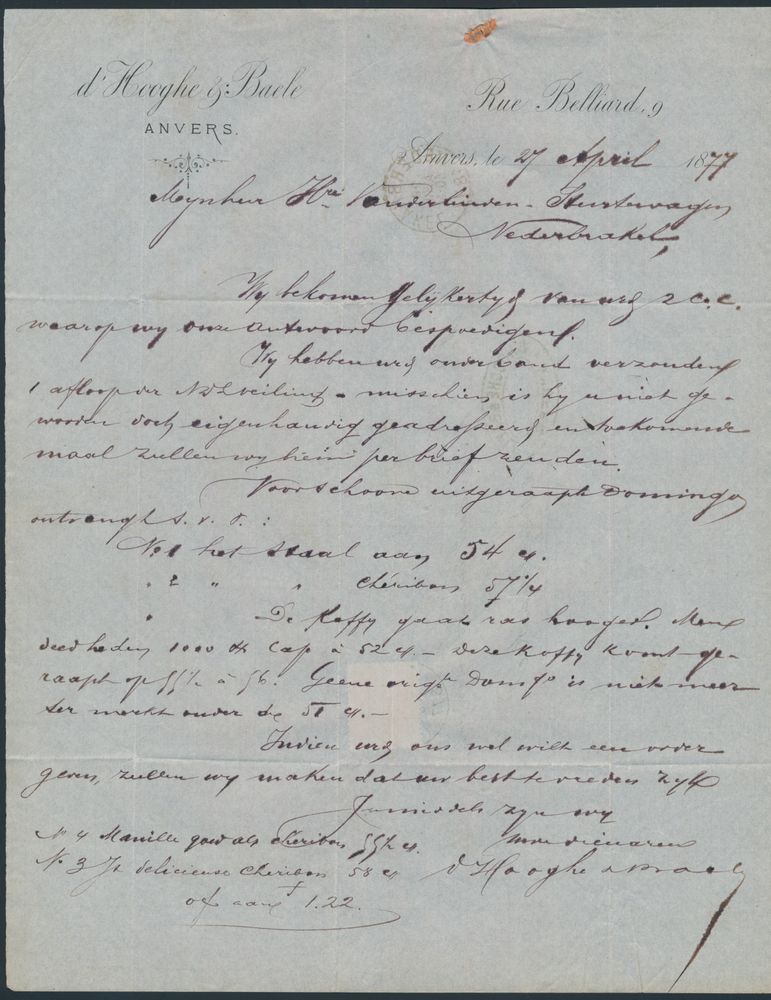 d'Hooghe & Baele
ANVERS.
Rue Belliard, 9
Anvers, le 27 April 1877
Mynheer Vanderlinden - Sturtewagen
Nederbrakel,
Wy bekomen gelykertyd van urd 2
waarop wy onze antwoord bespoedigen.
Wy hebben urd onder band verzonden
1 afloop der veiling - misschien is hy u niet ge-
worden doch eigenhandig geadresseerd en toekomende
maal zullen wy hem per brief zenden.
Voor schoone uitgeraapte Domingo
ontvangt s. v. p. :
No 1 het staal aan 54 c.
" 2 " " Chéribon 57 1/4
De Koffy gaat ras hooger. Men
deed heden 1000 cap à 52 c. - deze Koffy komt ge-
raapt op 55 1/2 à 56. Geene Domgo is niet meer
ter merkt onder de 51 c. -
Indien urd ons wel wilt een order
geven, zullen wy maken dat uw best tevreden zyt
Inmiddels zyn wy
No 4 Manille goed als Cheribon 55 1/2 c. uwe dienaren
No 3 delicieuse Cheribon 58 c d'Hooghe & Baele
of aan 1.22.